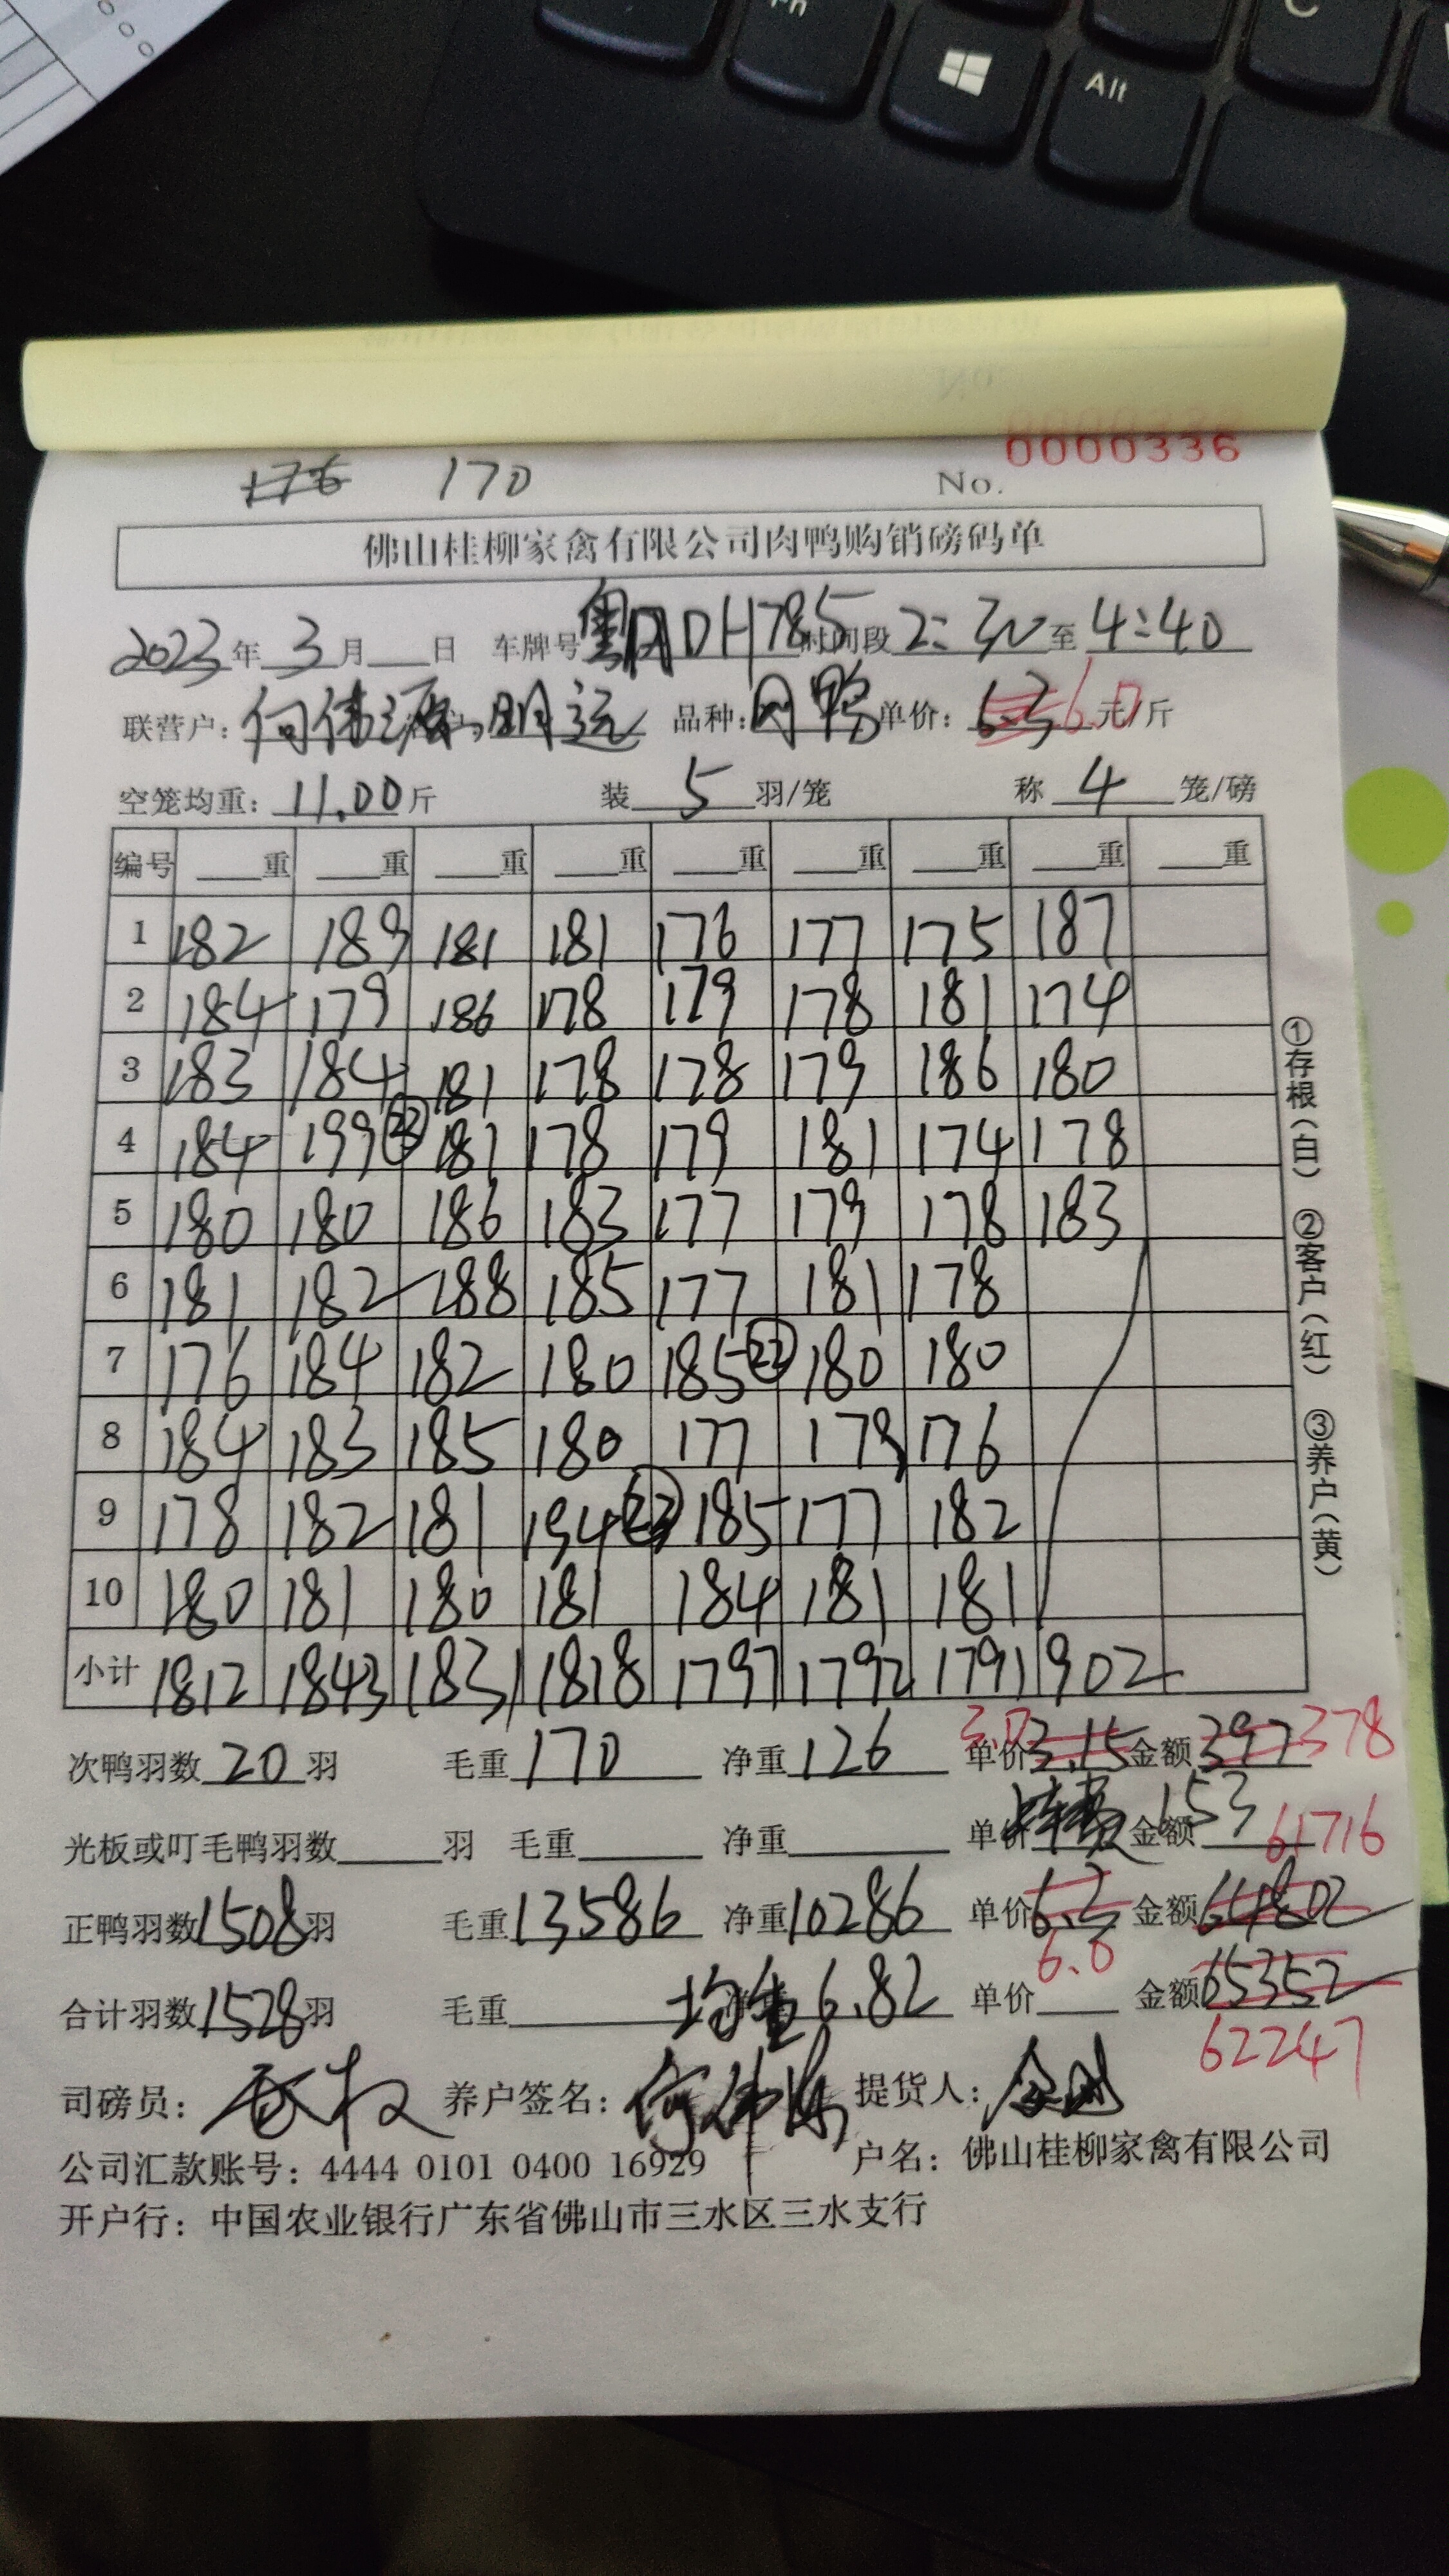 Fn Alt C
0000336
176 170 No.
佛山桂柳家禽有限公司肉鸭购销磅码单
2023年 3月 日 车牌号 粤ADH785 时间段 2:30 至 4:40
联营户: 何伟 明远 品种: 肉鸭 单价: 6.3 6.0 元/斤
空笼均重: 11.00斤 装 5 羽/笼 称 4 笼/磅
编号 重 重 重 重 重 重 重 重 重
1 182 189 181 181 176 177 175 187
2 184 179 186 178 179 178 181 174
3 183 184 181 178 178 179 186 180
4 184 199 22 181 178 179 181 174 178
5 180 180 186 183 177 179 178 183
6 181 182 188 185 177 181 178
7 176 184 182 180 185 22 180 180
8 184 183 185 180 177 179 176
9 178 182 181 194 23 185 177 182
10 180 181 180 181 184 181 181
小计 1812 1843 1831 1818 1797 1792 1791 902
次鸭羽数 20 羽 毛重 170 净重 126 单价 3.15 3.0 金额 397 378
光板或叮毛鸭羽数 羽 毛重 净重 单价 金额 153
61716
正鸭羽数 1508 羽 毛重 13586 净重 10286 单价 6.3 金额 64802
6.0
合计羽数 1528 羽 毛重 均重 6.82 单价 金额 65352
62247
司磅员: 养户签名: 提货人:
公司汇款账号: 4444 0101 0400 16929 户名: 佛山桂柳家禽有限公司
开户行: 中国农业银行广东省佛山市三水区三水支行
①存根(白) ②客户(红) ③养户(黄)